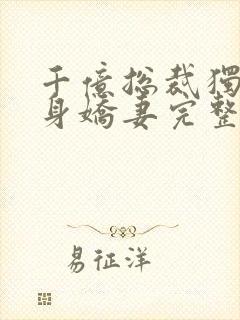 千億總裁獨
身嬌妻完整
易征洋